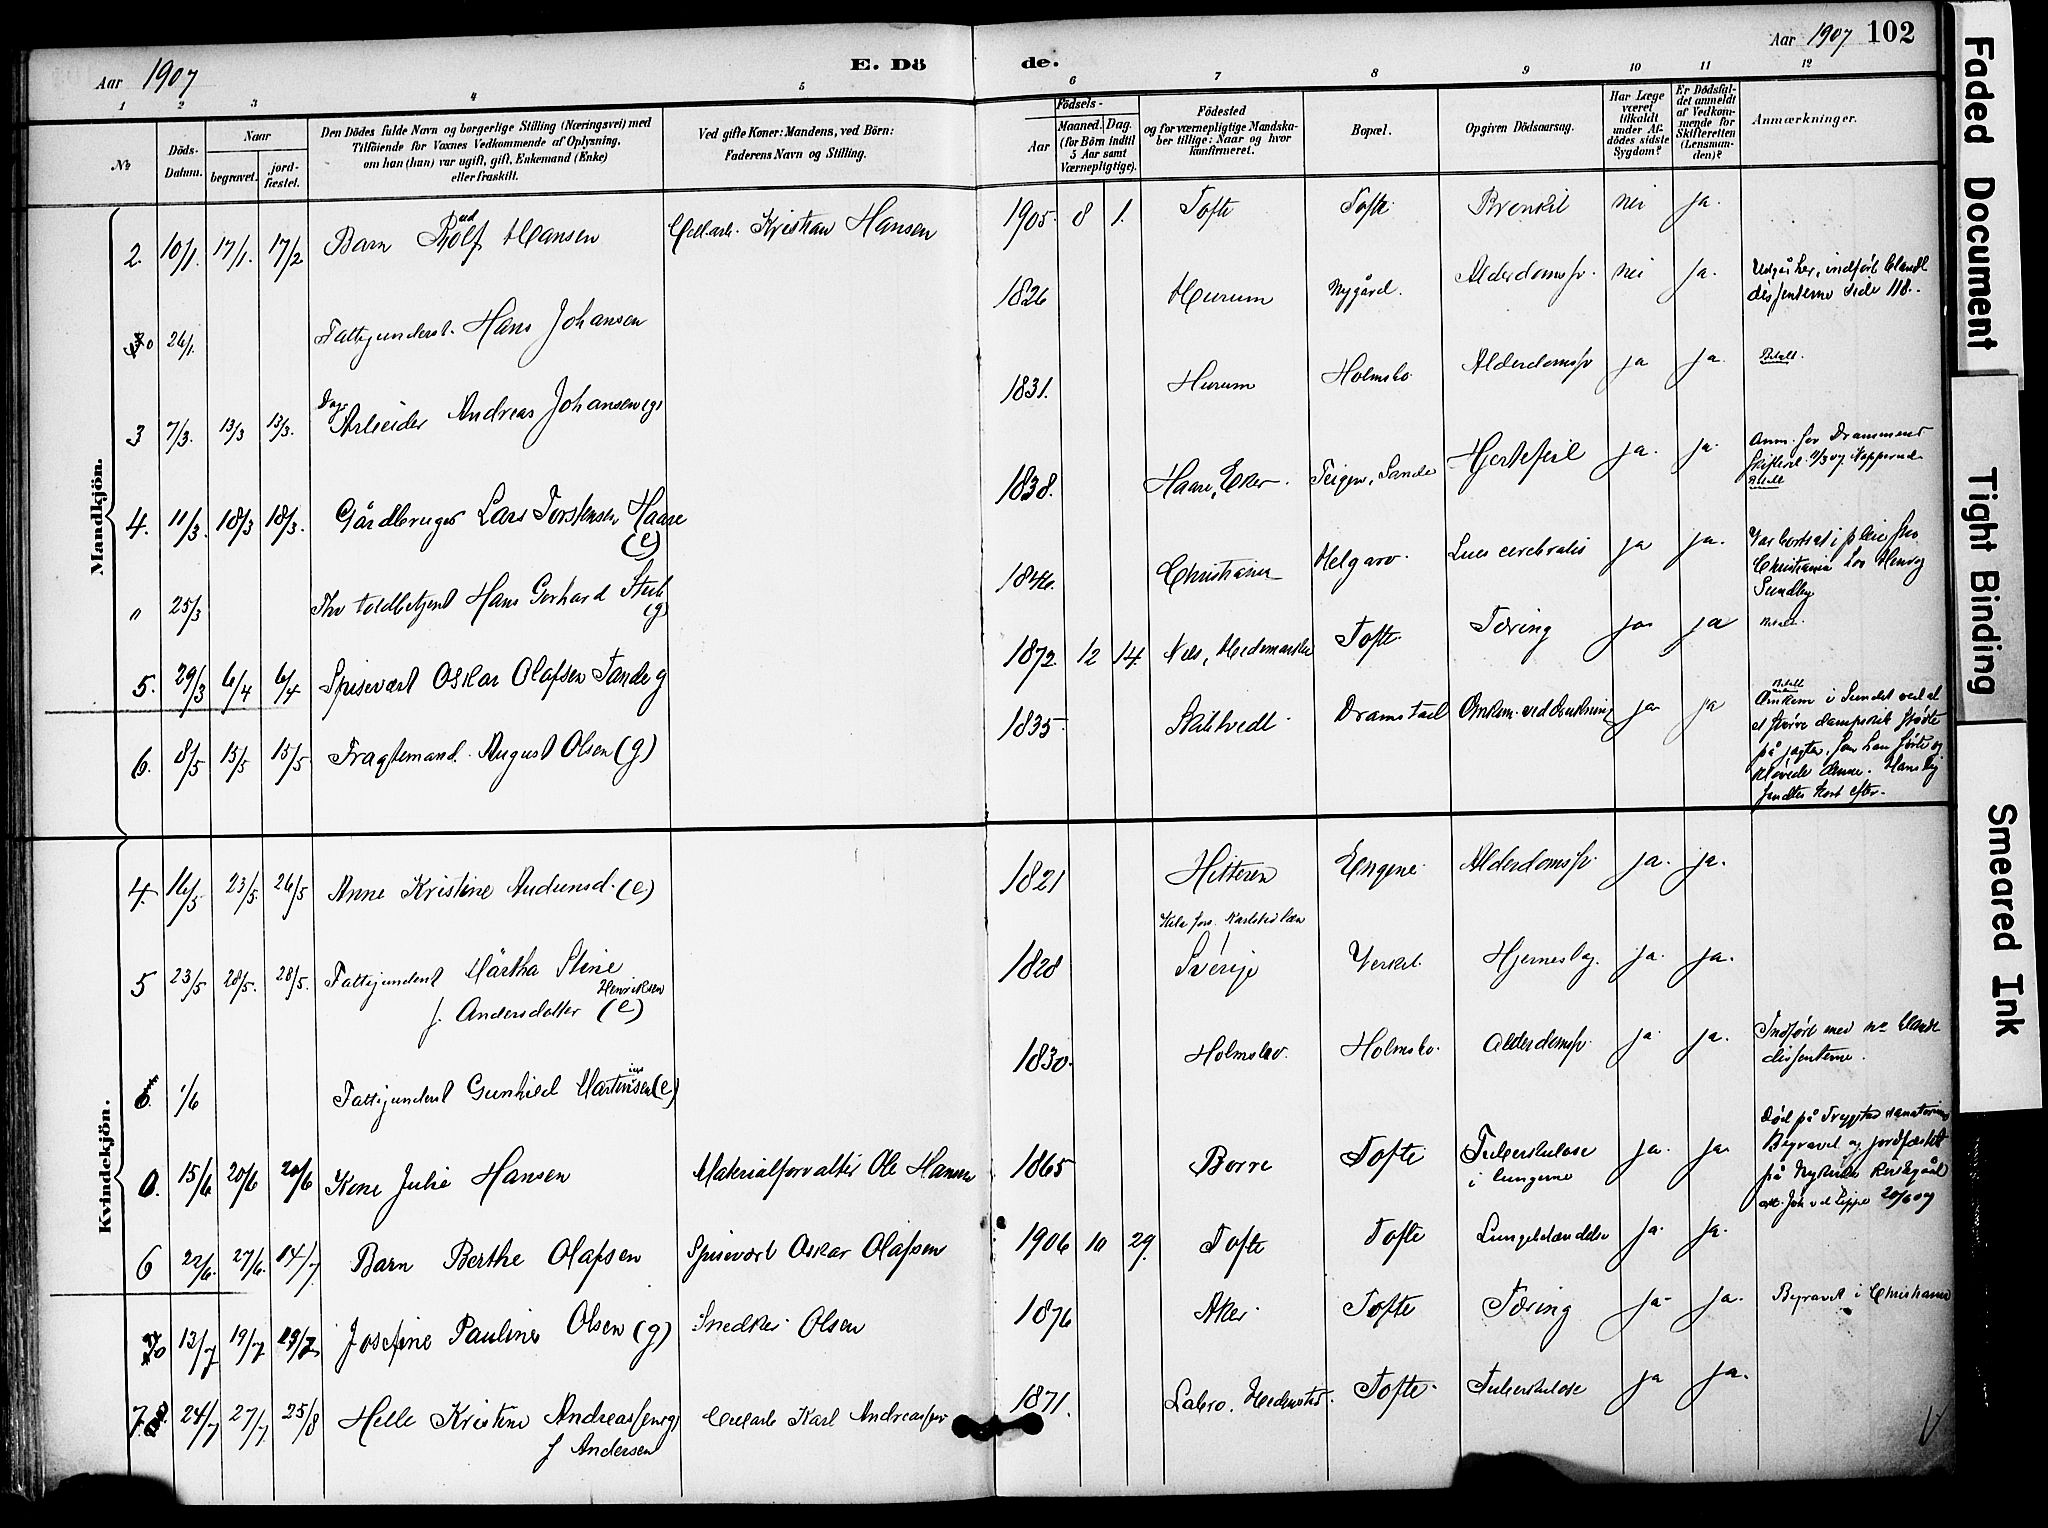 Aar 1907
E. Dö
de.
Aar 1907 102
1 2 3 4 5 6 7 8 9 10 11 12
№
Döds-
Datum.
Naar
begravet.
jord-
fæstet.
Den Dödes fulde Navn og borgerlige Stilling (Næringsvei) med
Tilföiende for Voxnes Vedkommende af Oplysning,
om han (hun) var ugift, gift, Enkemand (Enke)
eller fraskilt.
Ved gifte Koner: Mandens, ved Börn:
Faderens Navn og Stilling.
Födsels-
Aar
Maaned. Dag.
(for Börn indtil
5 Aar samt
Værnepligtige).
Födested
og for værnepligtige Mandska-
ber tillige: Naar og hvor
konfirmeret.
Bopæl.
Opgiven Dödsaarsag.
Har Læge
været
tilkaldt
under Af-
dödes sidste
Sygdom?
Er Dödsfal-
det anmeldt
af Vedkom-
mende for
Skifteretten
(Lensman-
den)?
Anmærkninger.
Mandkjön.
2. 10/1. 17/1. 17/2 Barn Rolf Hansen Kristian Hansen 1905. 8 1. Tofte Tofte nei ja.
26/1. Hans Johansen 1826 Hurum Nygård. Alderdomssv. nei ja. Udgår her, indført blandt
dissenterne side 118.
3 7/3. 13/3 13/3. Dag-
Arbeider Andreas Johansen (g) 1831. Hurum Holmsbo Alderdomssv ja ja. Betalt.
4. 11/3. 18/3 18/3. Gårdbruger Lars Torstensen Haare
(e) 1838. Haare, Eker. Teigen, Sande Hjertefeil ja. ja. Anm. for Drammens
Betalt
" 25/3 Hans Gerhard
(g) 1846. Christiania Lues cerebralis ja ja.
Christiania
Sundby
5. 29/3 6/4 6/4. Spisevært Oskar Olafsen Tande g 1872. 12 14. Nes, Hedemarken Tofte. Tæring ja ja
6. 8/5 15/5 15/5 Fragtemand. August Olsen (g) 1835. Dramstad Omkom. ved drukning ja ja Betalt
Omkom i Sundet ved at
et større dampskib stødte
på jagten, som han førte og
kløvede denne. Hans lig
fandtes kort efter.
Kvindekjön.
4. 16/5 23/5. 26/5 Anne Kristine Audunsd. (e) 1821 Hitteren Engene Alderdomssv. ja. ja.
5 23/5 28/5. 28/5. Märtha Stine
Henriksen
f. Andersdatter (e) 1828 Sverige Verket. ja. ja.
1/6 Gunhild Martinsen (e) 1830. Holmsbo. Holmsbo. Alderdomssv. ja ja. Indført med no blandt
dissenterne.
0. 15/6 20/6 20/6 Kone Julie Hansen Materialforvalter Ole Hansen 1865 Borre Tofte Tuberkulose
i lungerne ja. ja. Død på sanatorium
Begravet og jordfæstet
på Nykirke Kirkegård
20/6 07
6 22/6. 27/6. 14/7. Barn Berthe Olafsen Spisevært Oskar Olafsen 1906 10 29. Tofte Tofte Lungebetændelse ja. ja.
13/7 19/7 Josefine Pauline Olsen (g) Snedker Olsen 1876 Aker Tofte Tæring ja. ja. Begravet i Christiania
7. 24/7 27/7 25/8 Helle Kristine Andreassen (g)
f Andersen Karl Andreassen 1871. Tofte. Tuberkulose ja ja.
Faded Document
Tight Binding
Smeared Ink